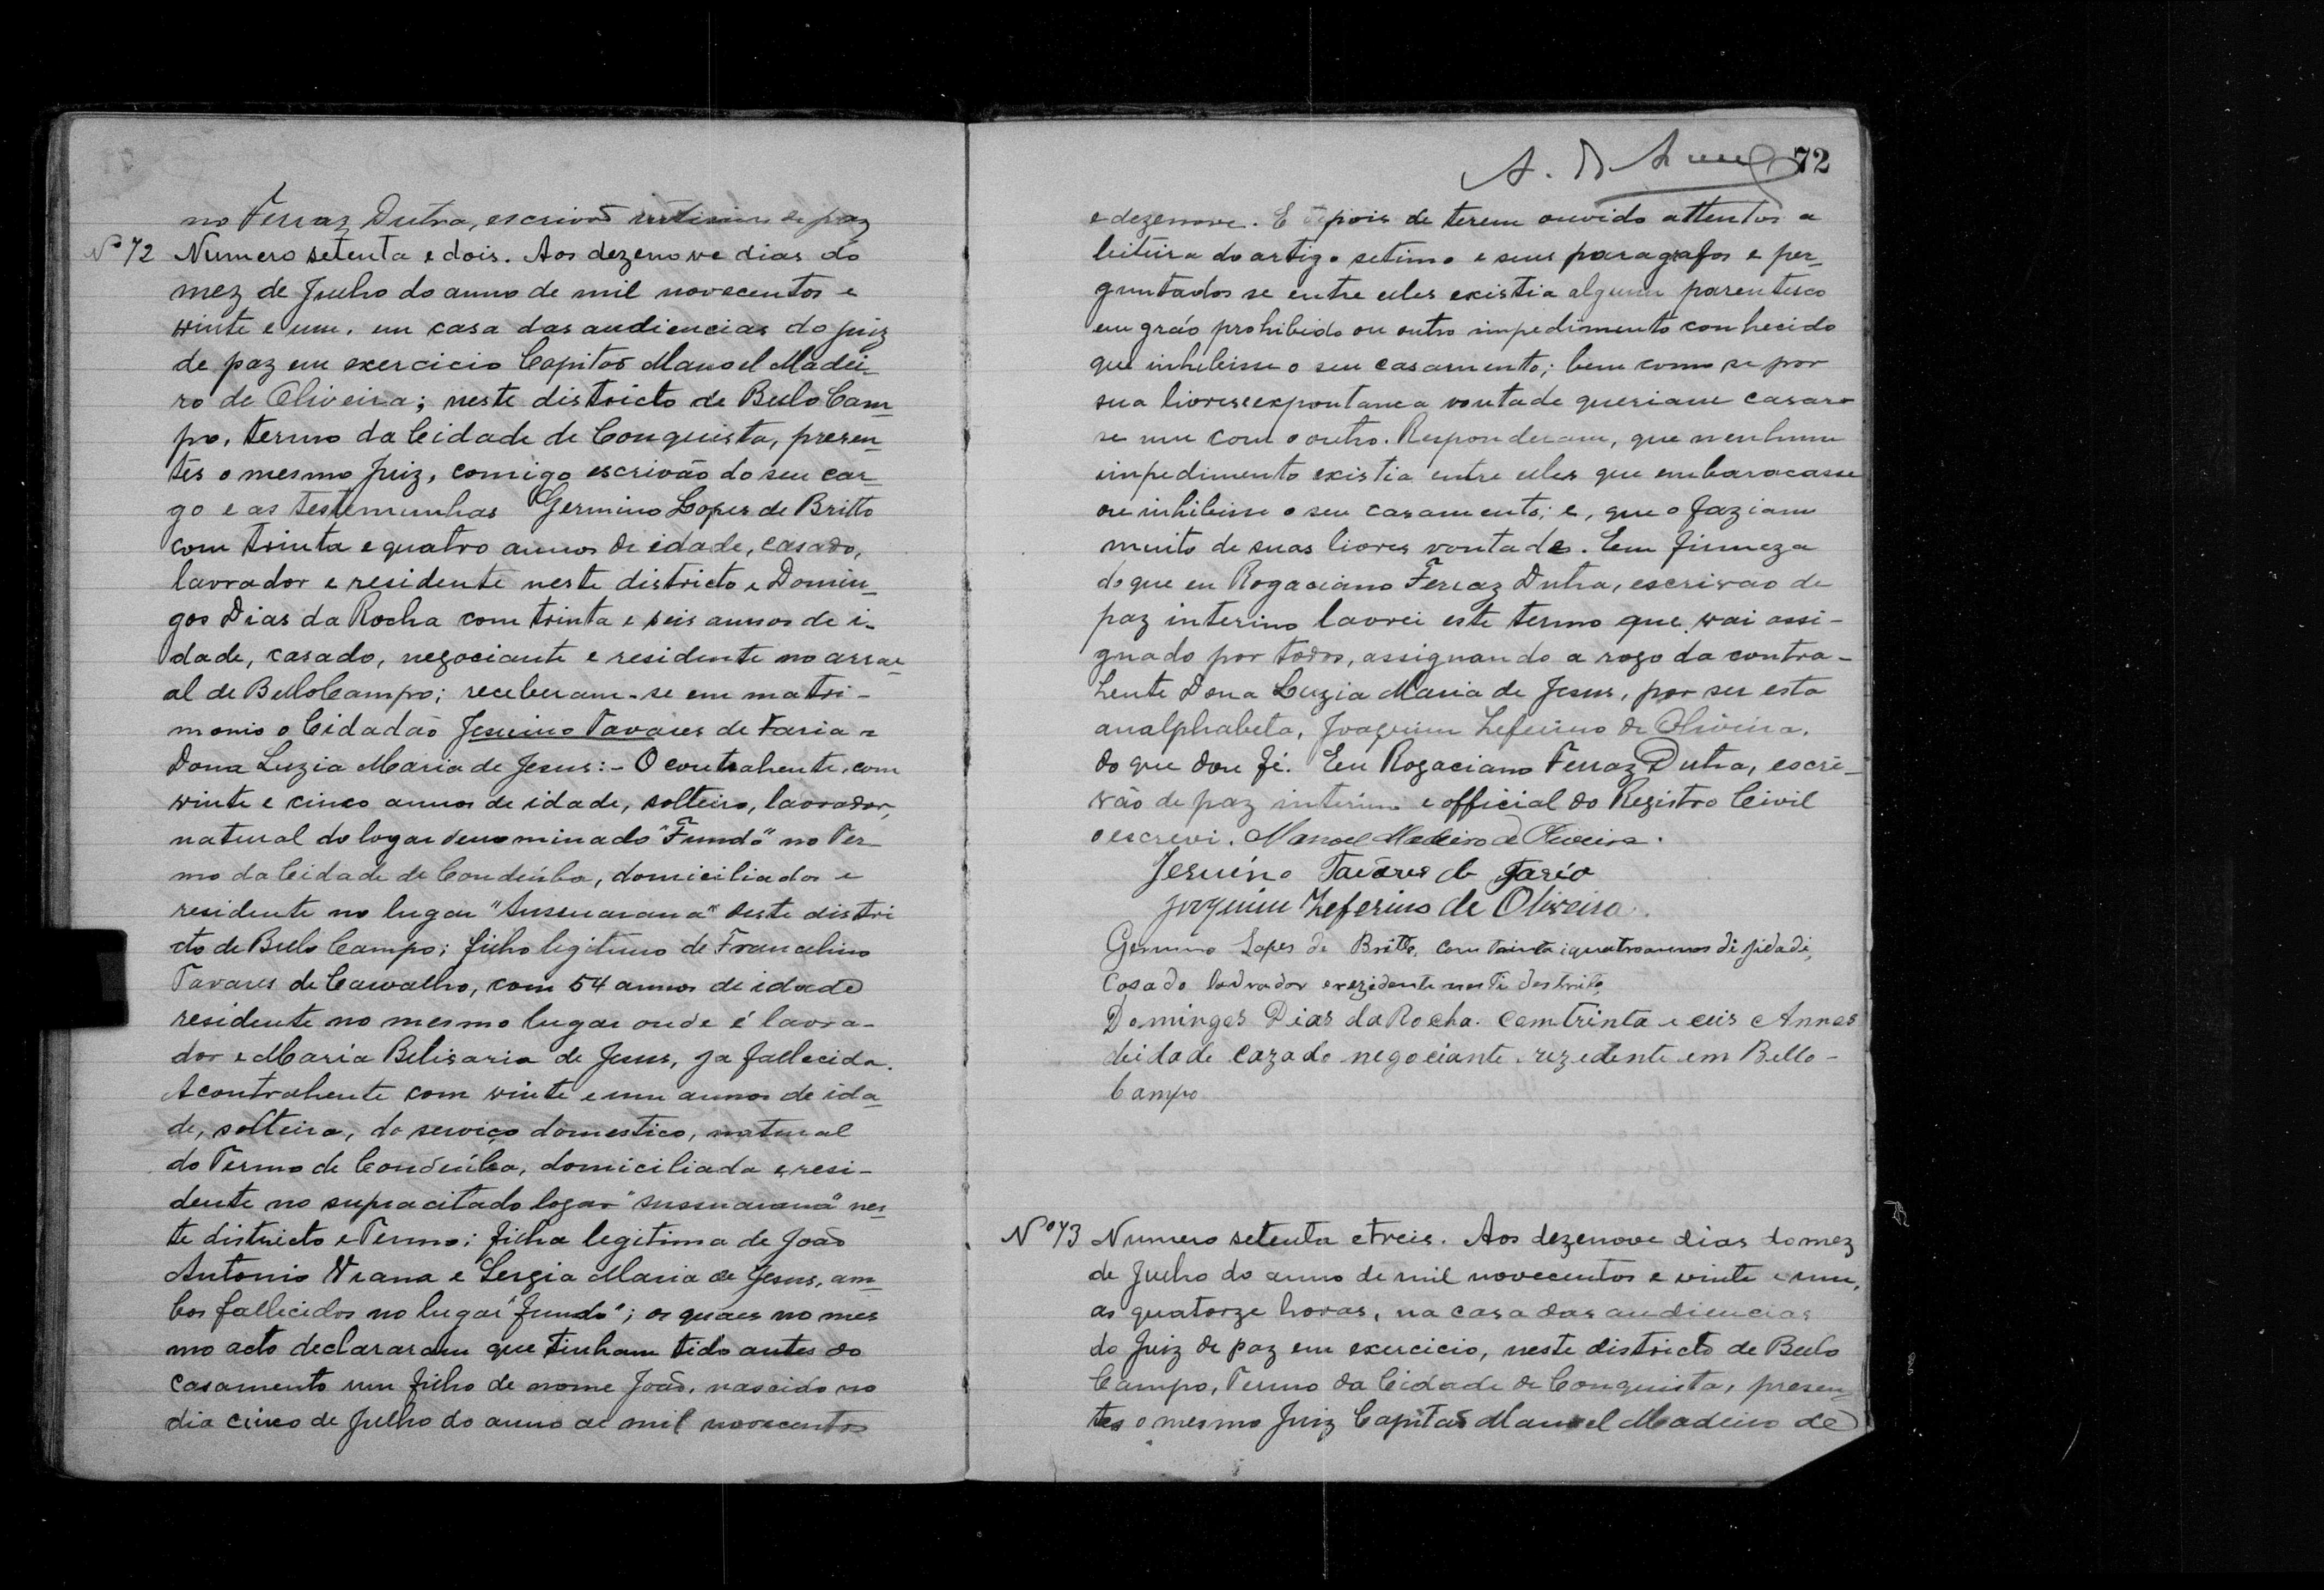 no Ferraz Dutra, escrivaõ interino de paz
Nº 72 Numero setenta e dois. Aos dezenove dias do
mez de Julho do anno de mil novecentos e
vinte e um, em casa das audiencias do juiz
de paz em exercicio Capitaõ Manoel Madei-
ro de Oliveira; neste districto de Bello Cam-
po, termo da Cidade de Conquista, presen-
tes o mesmo Juiz, comigo escrivão do seu car-
go e as testemunhas Germino Lopes de Britto
com trinta e quatro annos de edade, casado,
lavrador e residente neste districto e Domin-
gos Dias da Rocha com trinta e seis annos de i-
dade, casado, negociante e residente no arrai-
al de Bello Campo; receberam-se em matri-
monio o Cidadaõ Jesuino Tavares de Faria e
Dona Luzia Maria de Jesus:- O contrahente, com
vinte e cinco annos de idade, solteiro, lavrador,
natural do logar denominado "Fundo" no Ter-
mo da Cidade de Condeúba, domiciliados e
residente no lugar "Sussuarana" deste distri
cto de Bello Campo; filho legitimo de Francelino
Tavares de Carvalho, com 54 annos de idade
residente no mesmo lugar onde é lavra-
dor e Maria Belisaria de Jesus, ja fallecida.
A contrahente com vinte e um annos de ida-
de, solteira, do serviço domestico, natural
do Termo de Condeúba, domiciliada e resi-
dente no supracitado logar "Sussuarana" nes-
te districto e Termo; filha legitima de Joaõ
Antonio Viana e Sergia Maria de Jesus, am-
bos fallecidos no lugar "Fundo"; os quaes no mes
mo acto declararam que tinham tido antes do
casamento um filho de nome Joaõ, nascido no
dia cinco de Julho do anno de mil novecentos
72
e dezenove. E depois de terem ouvido attentos a
leitura do artigo setimo e seus paragrafos e per-
guntados se entre elles existia algum parentesco
em gráo prohibido ou outro impedimento conhecido
que inhibisse o seu casamento; bem como se por
sua livre e expontanea vontade queriam casar-
se um com o outro. Responderam, que nenhum
impedimento existia entre elles que embaracasse
ou inhibisse o seu casamento; e, que o faziam
muito de suas livres vontades. Em firmeza
do que eu Rogaciano Ferraz Dutra, escrivao de
paz interino lavrei este termo que vai assi-
gnado por todos, assignando a rogo da contra-
hente Dona Luzia Maria de Jesus, por ser esta
analphabeta, Joaquim Zeferino de Oliveira,
do que dou fé. Eu Rogaciano Ferraz Dutra, escri-
vão de paz interino e official do Registro Civil
o escrevi. Manoel Madeiro de Oliveira.
Jesuíno Tavares de Faria
Joaquim Zeferino de Oliveira.
Germino Lopes de Britto, com trinta i quatro annos di jidadi,
Casado lavrador e rezidente nesti destrito
Domingos Dias da Rocha. Com trinta e ceis Annos
deidade cazado negociante rezedente em Bello-
Campo
Nº 73 Numero setenta e treis. Aos dezenove dias do mez
de Julho do anno de mil novecentos e vinte e um,
as quatorze horas, na casa das audiencias
do Juiz de paz em exercicio, neste districto de Bello
Campo, Termo da Cidade de Conquista, presen-
tes o mesmo Juiz Capitaõ Manoel Madeiro de